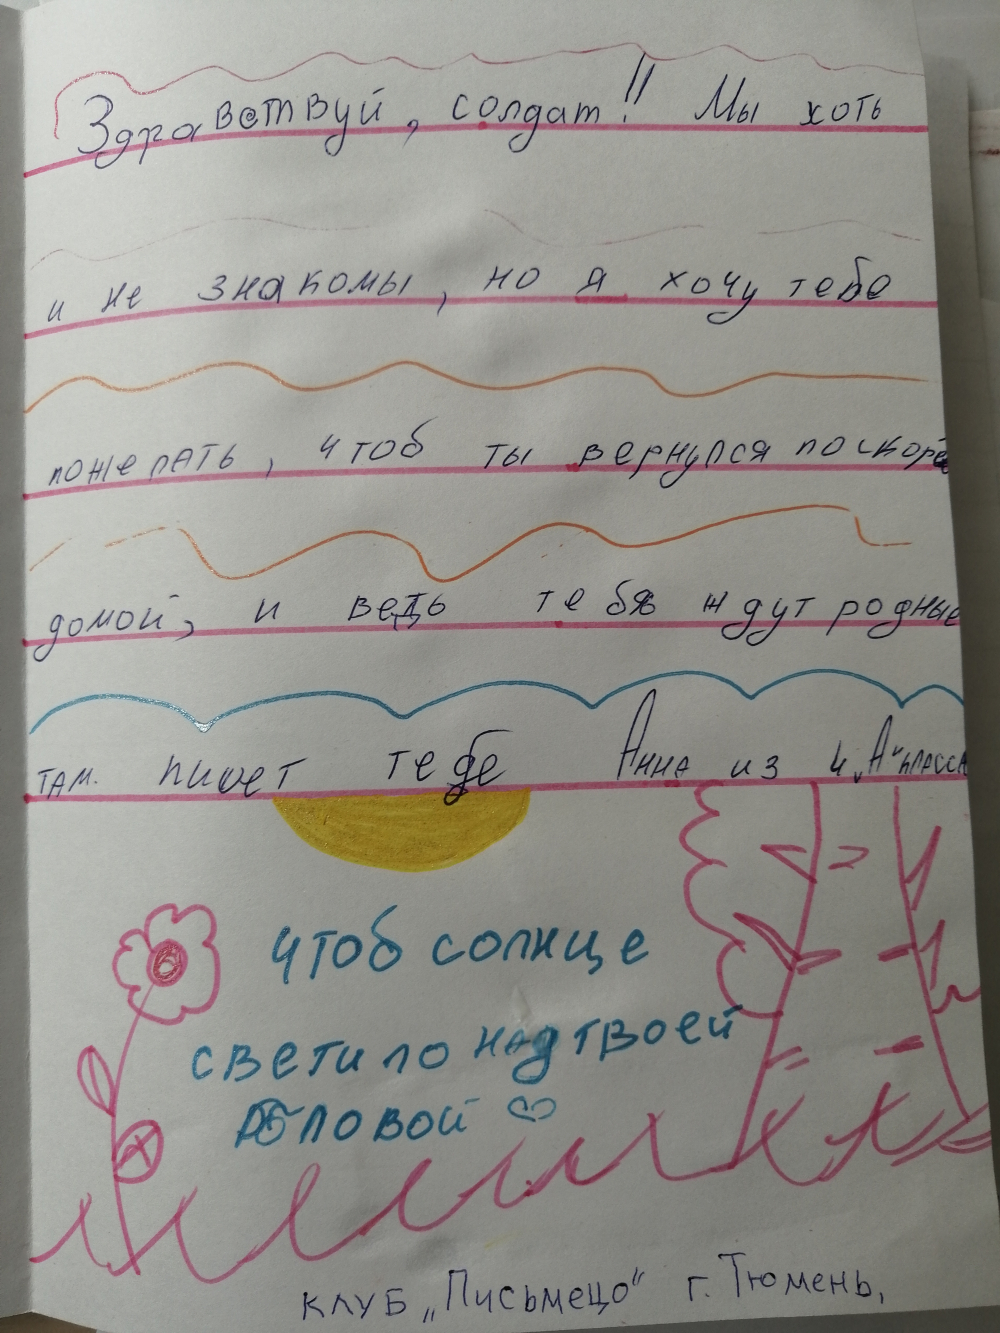 Здравствуй, солдат!! Мы хоть
и не знакомы, но я хочу тебе
пожелать, чтоб ты вернулся поскоре
домой, и ведь тебя ждут родные
там. пишет тебе Анна из 4 „А" класса
чтоб солнце
светило над твоей
головой
клуб „Письмецо" г. Тюмень,